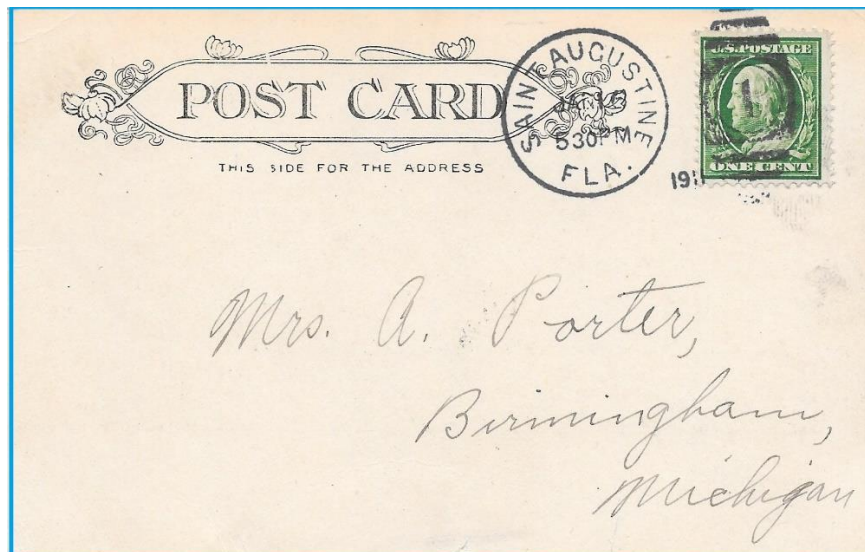 POST CARD
THIS SIDE FOR THE ADDRESS
SAINT AUGUSTINE
JAN
530PM
FLA.
U.S. POSTAGE
1
ONE CENT
Mrs. A. Porter,
Birmingham,
Michigan